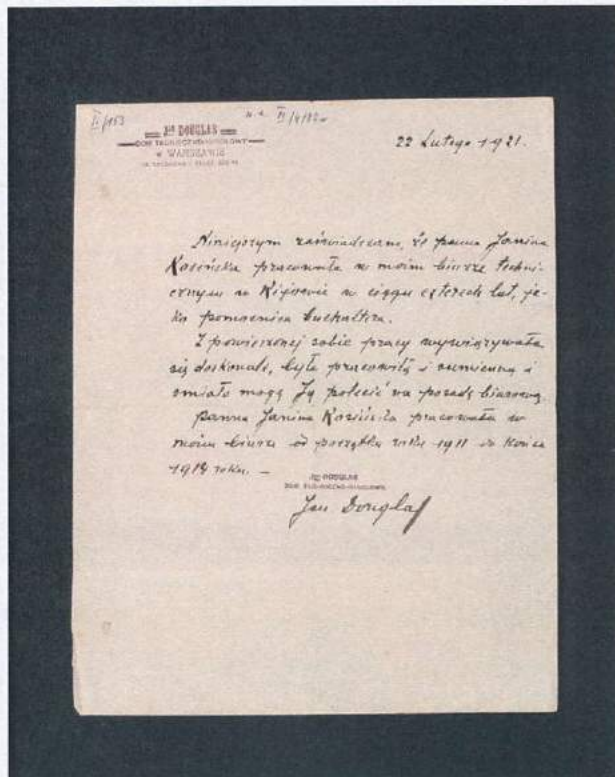 II/153
II/4/82
Jan DOUGLAS
DOM TECHNICZNO-HANDLOWY
w WARSZAWIE
22 Lutego 1921.
Niniejszym zaświadczam, że panna Janina
Kosińska pracowała w moim biurze techni-
cznym w Kijowie w ciągu czterech lat, ja-
ko pomocnica buchaltera.
Z powierzonej sobie pracy wywiązywała
się doskonale, była pracowitą i sumienną i
śmiało mogę Ją polecić na posadę biurową.
Panna Janina Kosińska pracowała w
moim biurze od początku roku 1911 do końca
1914 roku. —
Jan DOUGLAS
DOM TECHNICZNO-HANDLOWY
Jan Douglas